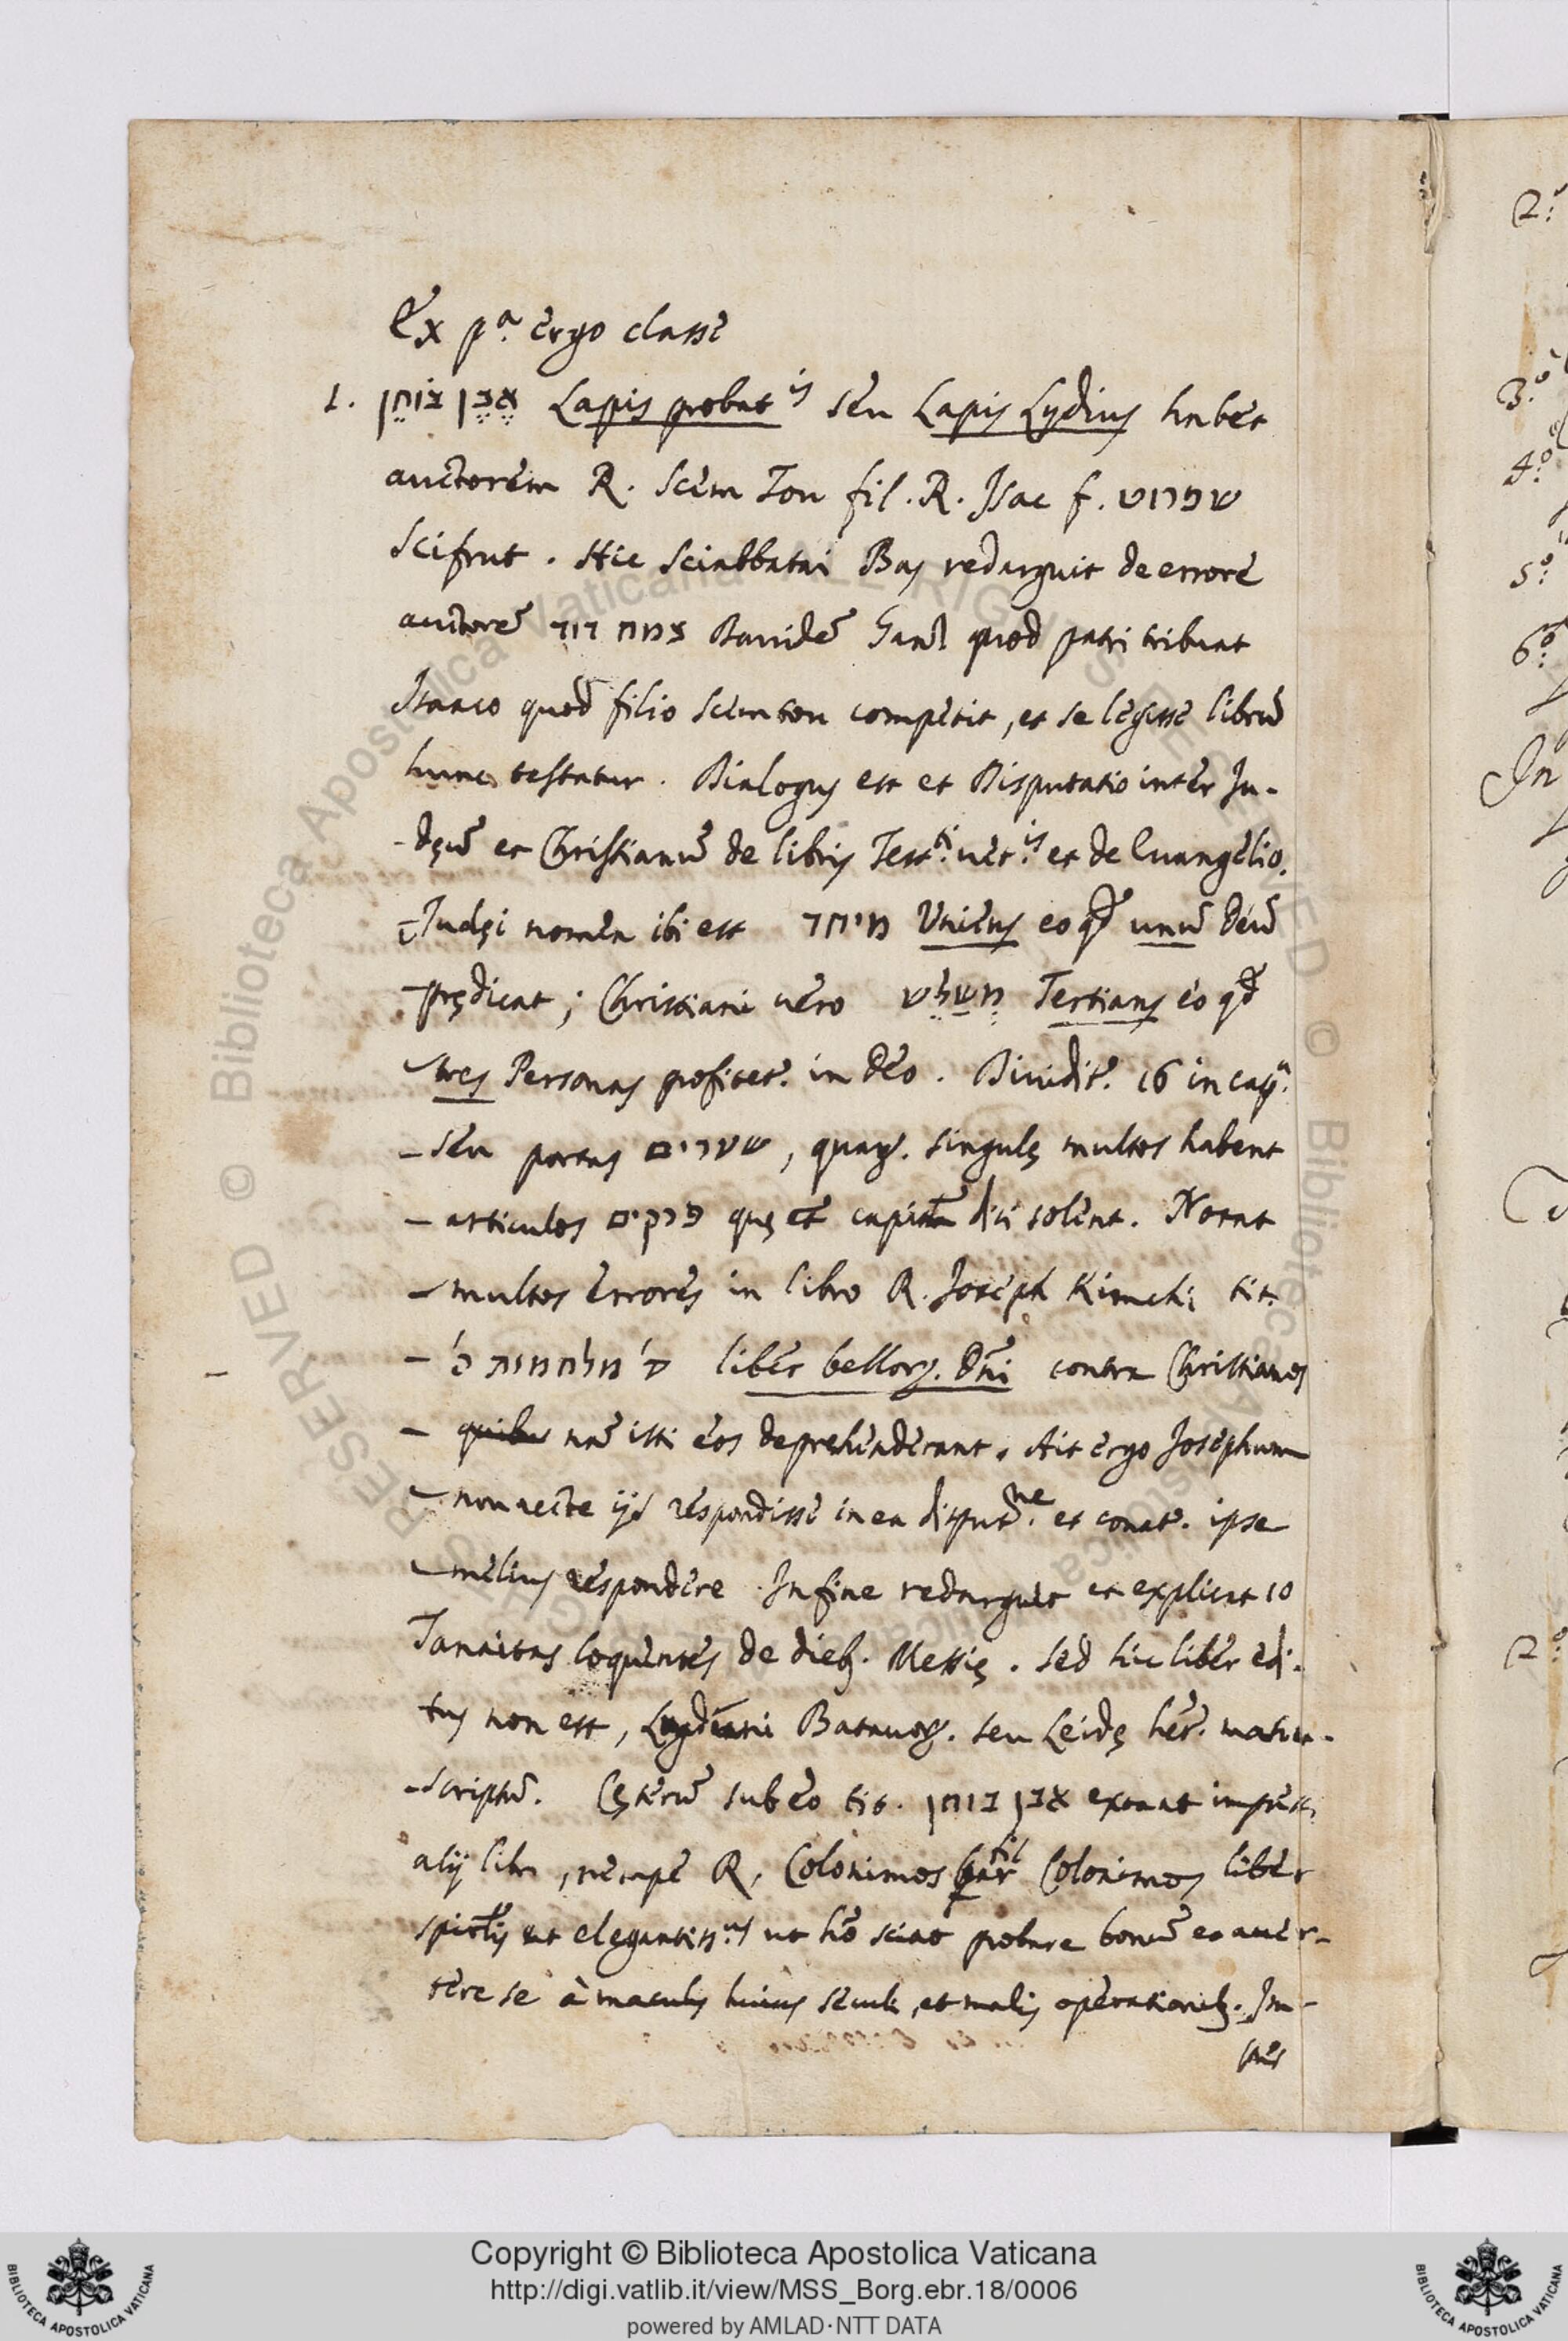 Ex pª ergo classe
1. אֶבֶן בּוֹחֵן Lapis probatis seu Lapis Lydius habet
auctorem R. Scem Tou fil. R. Isac f. שפרוט
Scifrut. Hic Sciabbatai Bas redarguit de errore
auctorē צמח דוד Dauidē Ganz quod patri tribuat
Isaaco quod filio Scemtou competit, et se legisse librū
hunc testatur. Dialogus est et Disputatio inter Ju-
-dęū et Christianū de libris Testti. uetis. et de Euangelio.
Judęi nomen ibi est מיחד Unitus eo qd unū Deū
-prędicat; Christiani uero מְשַׁלֵּשׁ Tertians eo qd
tres Personas profitet. in Deo. Diuidit. 16 in cap.
-seu portas שערים, quaꝝ. singulę multos habent
-articulos פרקים quę et capita dici solent. Notat
-multos errores in libro R. Joseph Kimchi tit.
-ס' מלחמות ה' liber belloꝝ. Dni contra Christianos
- quibus nā isti eos deprehenderant. Ait ergo Josephum
-non recte ijs respondisse in ea disputne. et conat. ipse
-melius respondere. In fine redarguit et explicat 10
Tanaitas loquentes de dieb. Messię. sed hic liber edi-
tus non est, Batauoꝝ. seu Leidę het. manu-
-scriptū. Cęterū sub eo tit. אבן בוחן extant impress.
alij libri, nempe R. Colonimos fil Colonimos liber
spirtlis et elegantiss.us ut hō sciat probare bonū et auer-
tere se à maculis huius seculi, et malis operationib. Im-
pres